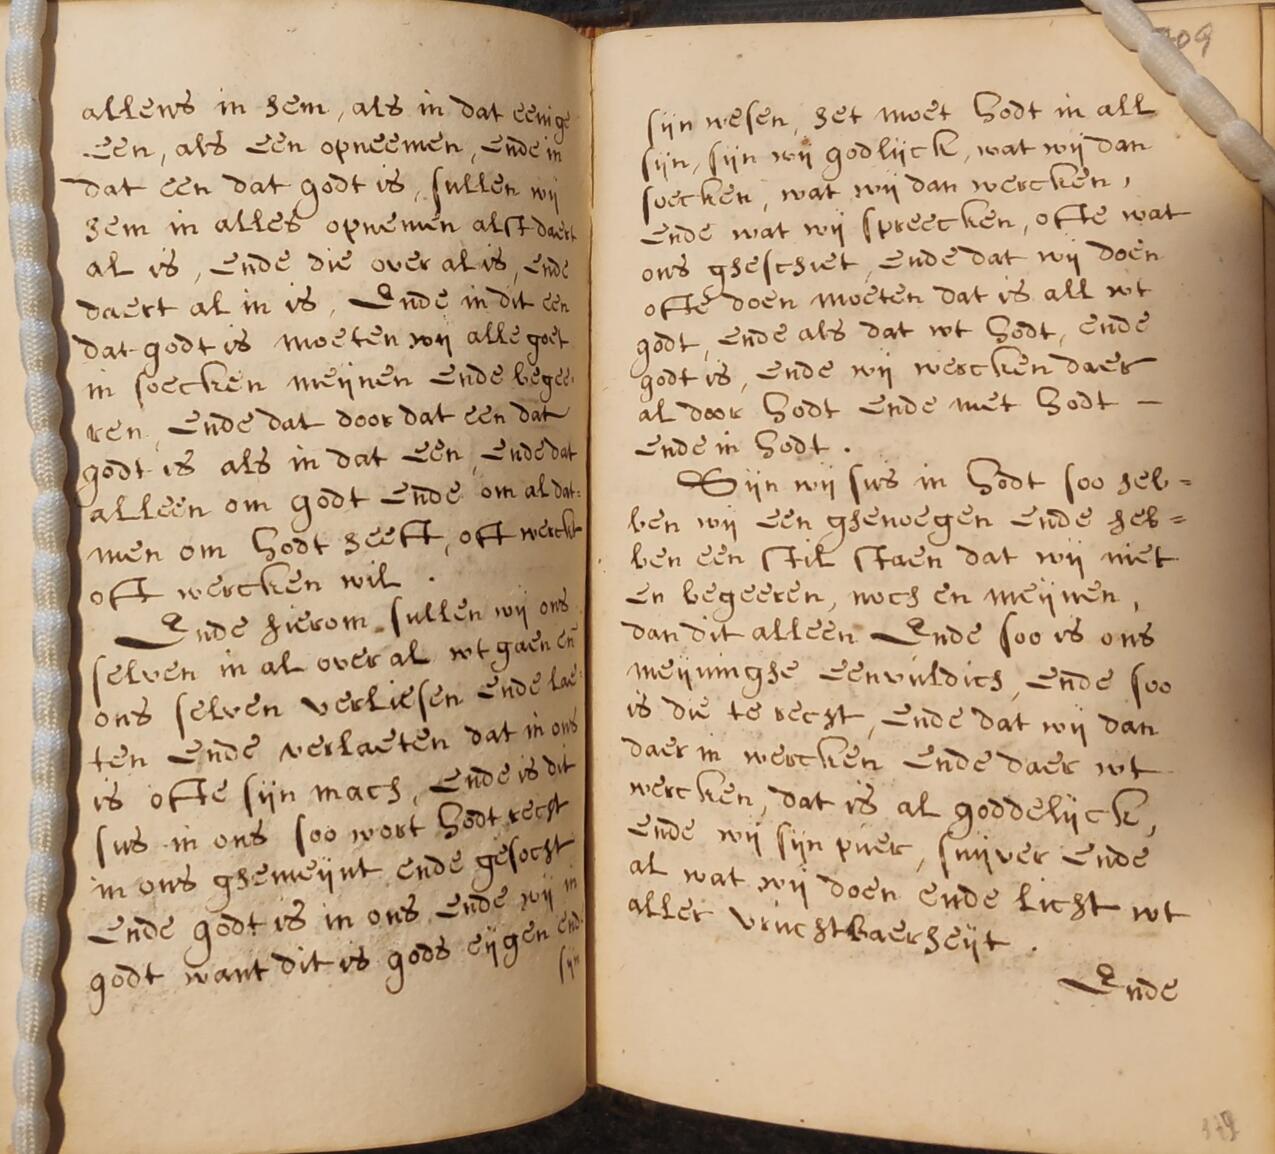 allens in hem, als in dat eenige
Een, als Een opneemen, Ende in
dat een dat godt is, sullen wij
hem in alles opnemen alst daert
al is, Ende die over al is, Ende
daert al in is, Ende in dit een
dat godt is moeten wij alle goet
in soecken meijnen Ende begee-
ren, Ende dat door dat een dat
godt is als in dat Een, Ende dat
alleen om godt Ende om al dat-
men om Godt heeft, oft werckt
oft wercken wil.
Ende hierom sullen wij ons
selven in al over al wt gaen en
ons selven verliesen Ende lae-
ten Ende verlaeten dat in ons
is ofte sijn mach, Ende is dit
sus in ons soo wort Godt recht
in ons ghemeijnt ende gesocht
Ende godt is in ons Ende wij in
godt want dit is gods eijgen end
sijn
109
sijn wesen, het moet Godt in all
sijn, sijn wij godlijck, wat wij dan
soecken, wat wij dan wercken,
Ende wat wij spreecken, ofte wat
ons gheschiet, Ende dat wij doen
ofte doen moeten dat is all wt
godt, Ende als dat wt Godt, Ende
godt is, Ende wij wercken daer
al door Godt Ende met Godt –
Ende in Godt.
Sijn wij sus in Godt soo heb=
ben wij een ghenoegen Ende heb=
ben een stil staen dat wij niet
En begeeren, noch en meijnen,
dan dit alleen Ende soo is ons
meijninghe eenvuldich, Ende soo
is die te recht, Ende dat wij dan
daer in wercken Ende daer wt
wercken, dat is al goddelijck,
Ende wij sijn puer, suijver Ende
al wat wij doen ende licht wt
aller vruchtbaerheijt.
Ende